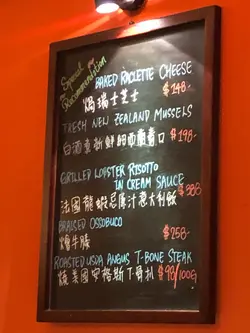 Special
Recommendation
BAKED RACLETTE CHEESE
焗瑞士芝士 $148-
FRESH NEW ZEALAND MUSSELS
白酒煮新鮮紐西蘭青口 $198-
GRILLED LOBSTER RISOTTO
IN CREAM SAUCE
法國龍蝦忌廉汁意大利飯 $388
BRAISED OSSOBUCO
燴牛膝 $258-
ROASTED USDA ANGUS T-BONE STEAK
燒美國安格斯T骨扒 $98/100G